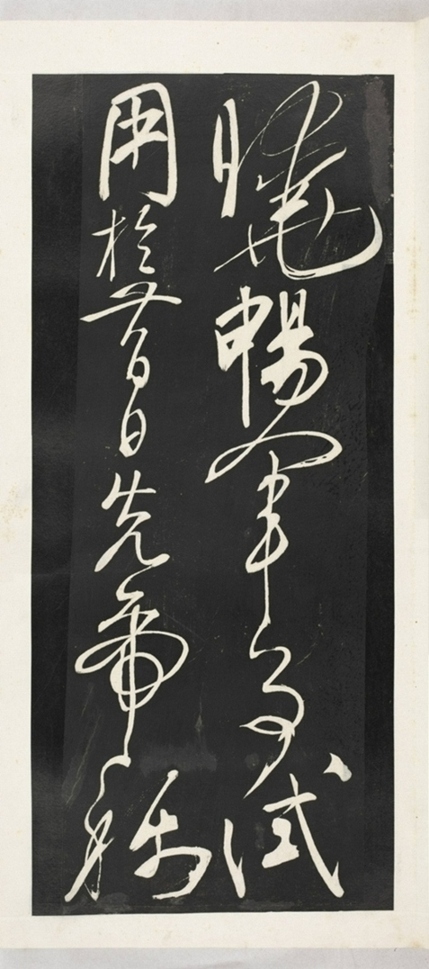 曉暢軍事試
用於昔日先帝稱